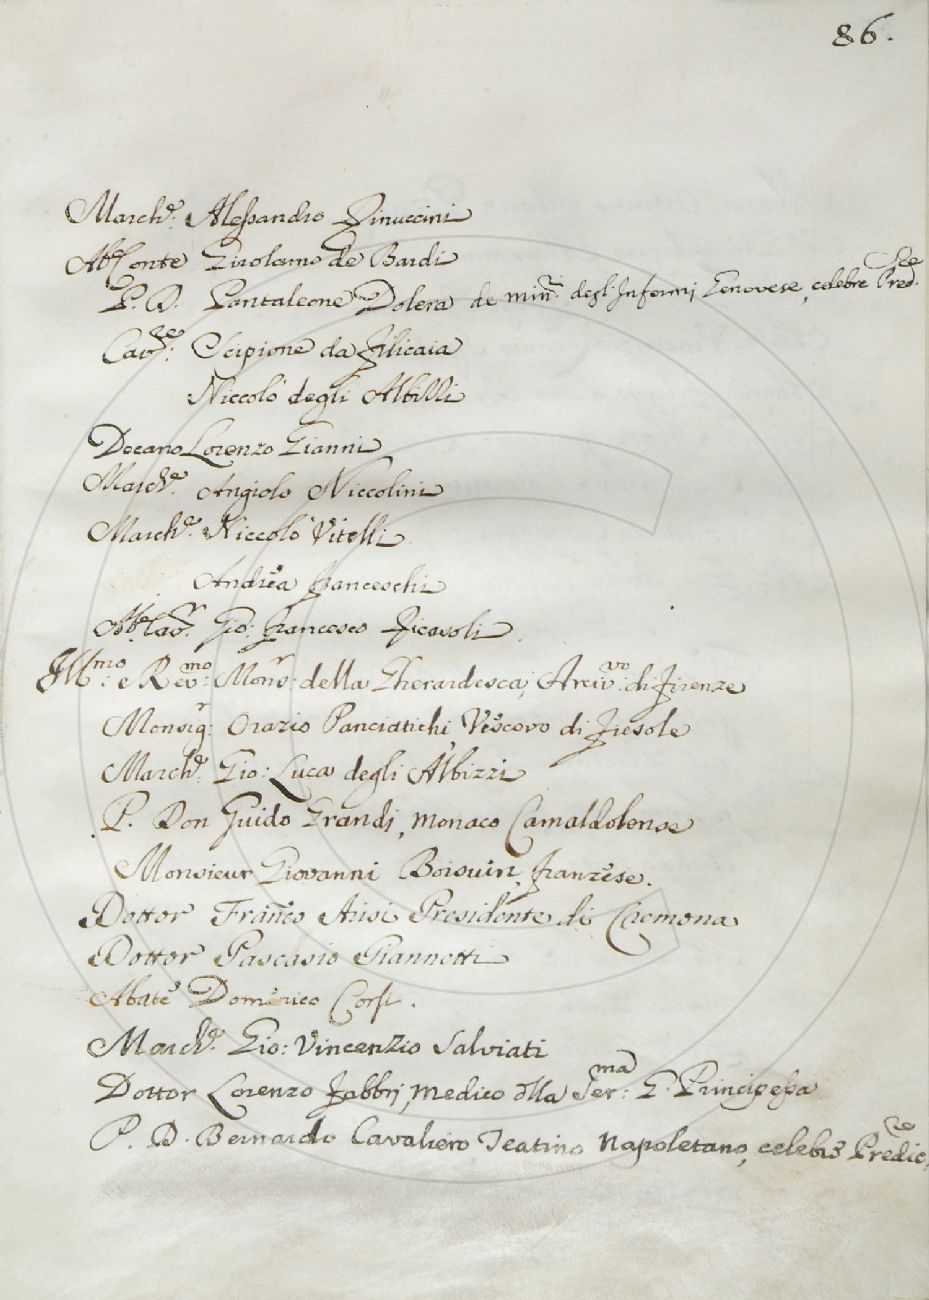 86.
March.e Alessandro Rinuccini
Ab.e Conte Girolamo de Bardi
P. D. Pantaleone Dolera de min:ri degl'Infermi Genovese, celebre Pred.re
Cav:re Scipione da Filicaia
Niccolò degli Albilli
Decano Lorenzo Gianni
March.e Angiolo Niccolini
March.e Niccolò Vitelli
Andrea Franceschi
Ab.e Cav.r Gio: Francesco Ricasoli
Ill:mo e Rev:mo Mons:r della Gherardesca, Arciv:vo di Firenze
Monsig:r Orazio Panciatichi Vescovo di Fiesole
March.e Gio: Luca degli Albizzi
P. Don Guido Grandi, Monaco Camaldolense
Monsieur Giovanni Boisuin, Franzese.
Dottor Franco Arisi Presidente di Cremona
Dottor Pascasio Giannetti
Abate Domenico Corsi.
March.e Gio: Vincenzio Salviati
Dottor Lorenzo Fabbri, Medico dlla Ser:ma G. Principessa
P. D. Bernardo Cavaliero Teatino Napoletano, celebre Predic.re